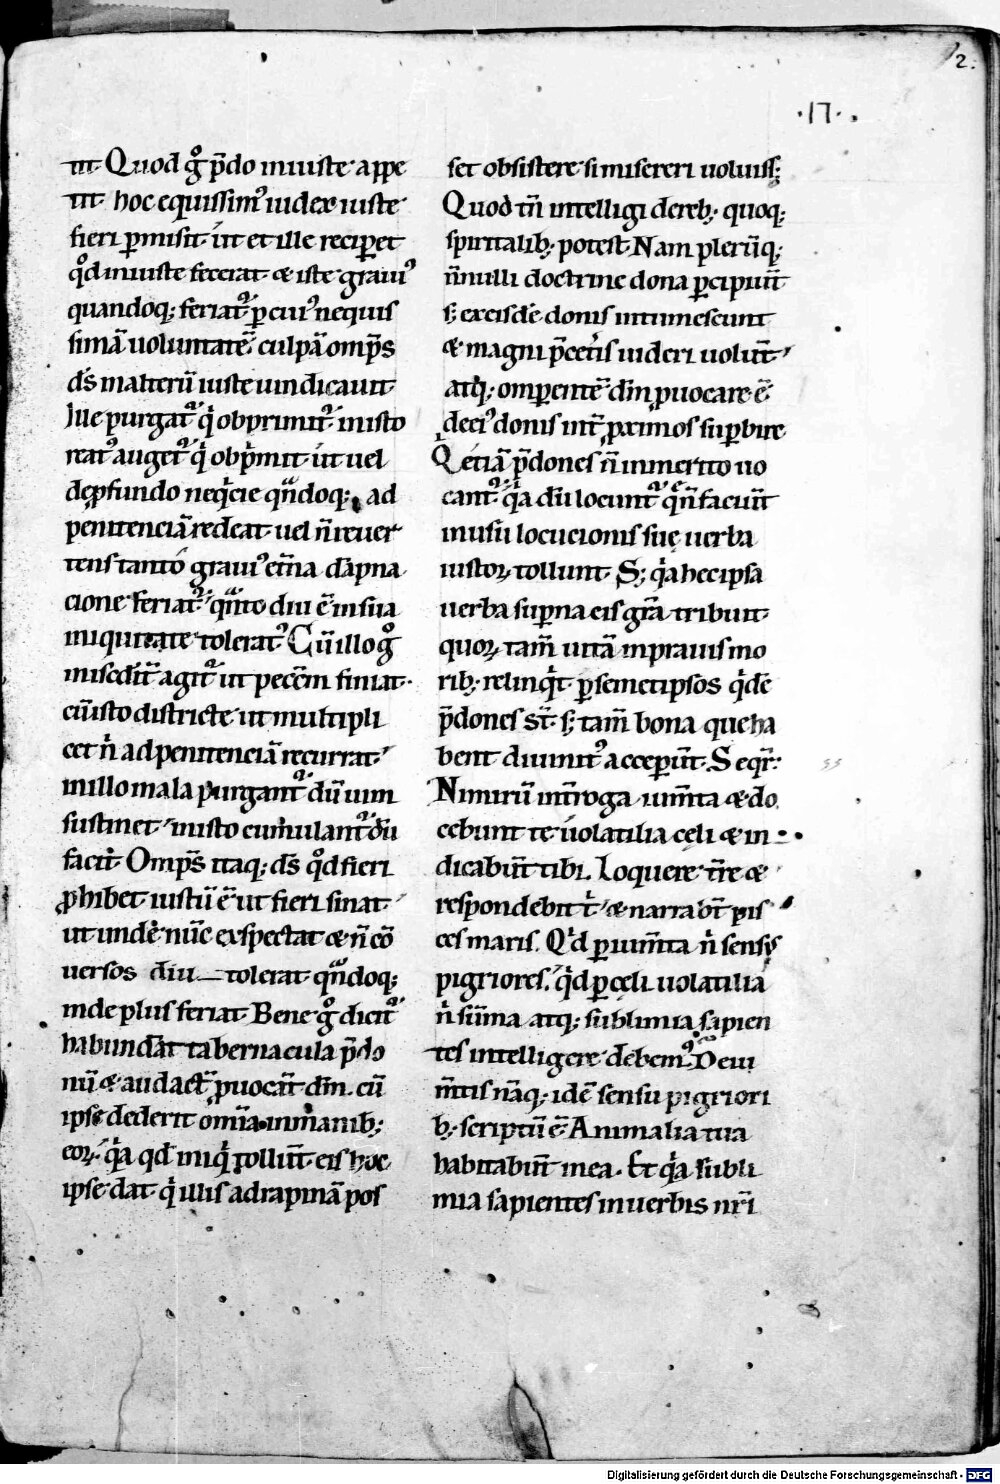 2.
·17·
tit· Quod g̊ p̄do iniuste appe
tit· hoc equissim᷒ iudex iuste
fieri ꝑmisit· út et ille reciperet
qđ iniuste fecerat· & iste graui᷒
quandoq; feriat᷑ ꝑ cui᷒ nequis
simā uoluntatē culpā omp̄s
dš malterū iuste uindicauit
Ille purgat᷑ qͥ obprimit᷑· in isto
reat᷒ auget᷑ qͥ obp̄mit· út uel
de ꝓfundo neqͥcie qͣndoq; ad
penitenciā redeat uel n̄ reuer
tens tantó graui᷒ et̄na dāpna
cione feriat᷑· qͣnto diu ē in sua
iniquitate tolerat᷑ Cū illo g̊
misedit̄ agit᷑ ut peccm̄ finiat·
cū isto districte· ut multipli
cet nͥ ad penitenciā recurrat·
in illo mala purgant᷑ dū uim
sustinet· in isto cumulant᷑ dū
facit· Omp̄s itaq; dš qđ fieri
ꝓhibet· iustū ē ut fieri sinat·
ut undē nūc exspectat & n̄ cō
uersos diu tolerat· qͣndoq;
inde plus feriat· Bene g̊ dicit᷑
habundāt tabernacula p̄do
nū & audact̄ ꝓuocāt dm̄. cū
ipse dederit om̄ia in manib;
eoꝝ· qͥa qđ iniqͥ tollūt· eis hoc
ipse dat· qͥ illis ad rapinā pos
set obsistere si misereri uoluiss;
Quod tn̄ intelligi dereb; quoq;
spiritalib; potest· Nam plerūq;
n̄nulli doctrine dona ꝑcipiūt
s; ex eisdē donis intumescunt
& magni p̄ cet̄is uideri uolūt·
atq; omp̄entē dm̄ ꝓuocare ē
de ei᷒ donis int̄ ꝓximos suꝑbire
Q etiā p̄dones n̄ inmerito uo
cant᷑ qͥa dū locunt᷑ q̄ n̄ faciūt
in usū locucionis suę uerba
iustoꝝ tollunt· S; qͥa hec ipsa
uerba suꝑna eis gr̄a tribuit·
quoꝝ tam̄ uitā in prauis mo
rib; relinqͥt· ꝑ semetipsos qͥdē
p̄dones st̄· s; tam̄ bona que ha
bent diuinit᷒ acceꝑūt· Seqr̄:
Nimirū int̄roga iumn̄ta & do
cebunt te· uolatilia celi & in
dicabūt tibi. Loquere t̄re &
respondebit tͥ· & narrabt̄ pis
ces maris. Qͥd ꝑ iumn̄ta nͥ sensu
pigriores. qͥd ꝑ cęli uolatilia
nͥ sūma atq; sublimia sapien
tes intelligere debem᷒ De iu
mn̄tis nāq; idē sensu pigriori
b; scriptū ē Animalia tua
habitabūt in ea· Et qͥa subli
mia sapientes in uerbis nr̄i
Digitalisierung gefördert durch die Deutsche Forschungsgemeinschaft - DFG